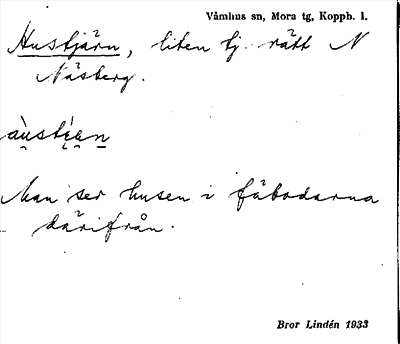 Våmhus sn, Mora tg, Koppb. l.
Hustjärn, liten tj. rätt N
Näsberg.
Man ser husen i fäbodarna
därifrån.
Bror Lindén 1933